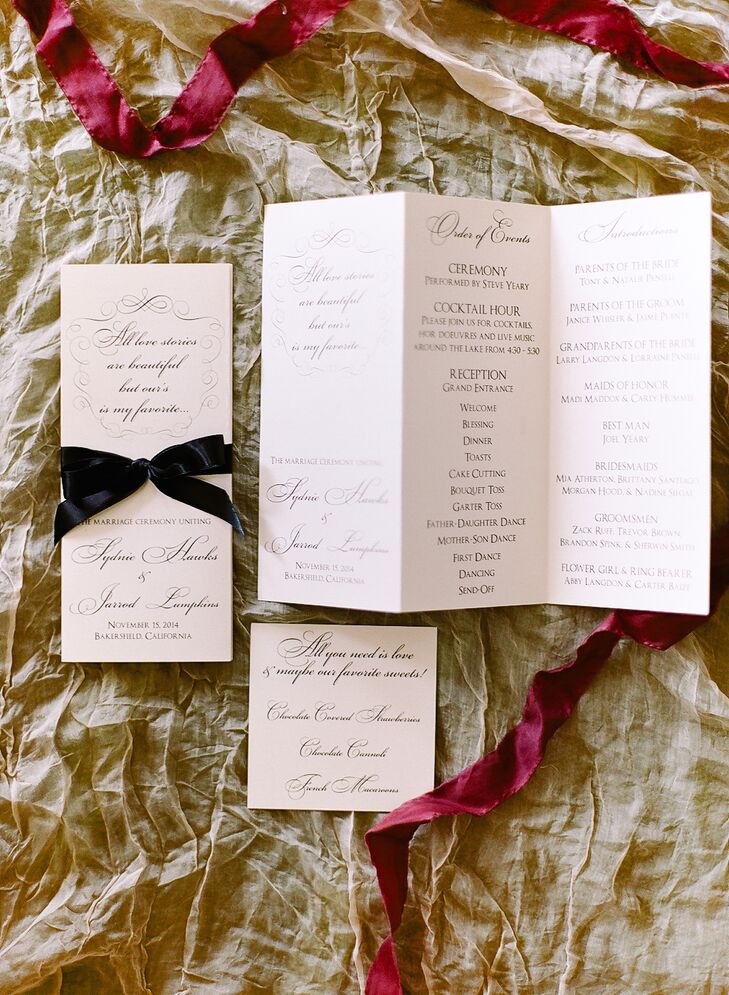 All love stories
are beautiful
but our's
is my favorite...
The marriage ceremony uniting
Sydnie Hawks
&
Jarrod Lumpkins
November 15, 2014
Bakersfield, California
All love stories
are beautiful
but our's
is my favorite...
The marriage ceremony uniting
Sydnie Hawks
&
Jarrod Lumpkins
November 15, 2014
Bakersfield, California
Order of Events
Ceremony
Performed by Steve Yeary
Cocktail Hour
Please join us for cocktails,
hor doeuvres and live music
around the lake from 4:30 - 5:30
Reception
Grand Entrance
Welcome
Blessing
Dinner
Toasts
Cake Cutting
Bouquet Toss
Garter Toss
Father-Daughter Dance
Mother-Son Dance
First Dance
Dancing
Send-Off
Introductions
Parents of the Bride
Tony & Natalie
Parents of the Groom
Janice Whisler & Jaime Puente
Grandparents of the Bride
Larry Langdon & Lorraine
Maids of Honor
Madi Maddox & Carly Hummel
Best Man
Joel Yeary
Bridesmaids
Mia Atherton, Brittany Santiago
Morgan Hood, & Nadine Segal
Groomsmen
Zack Ruff, Trevor Brown,
Brandon Spink, & Sherwin Smith
Flower Girl & Ring Bearer
Abby Langdon & Carter
All you need is love
& maybe our favorite sweets!
Chocolate Covered Strawberries
Chocolate Cannoli
French Macaroons